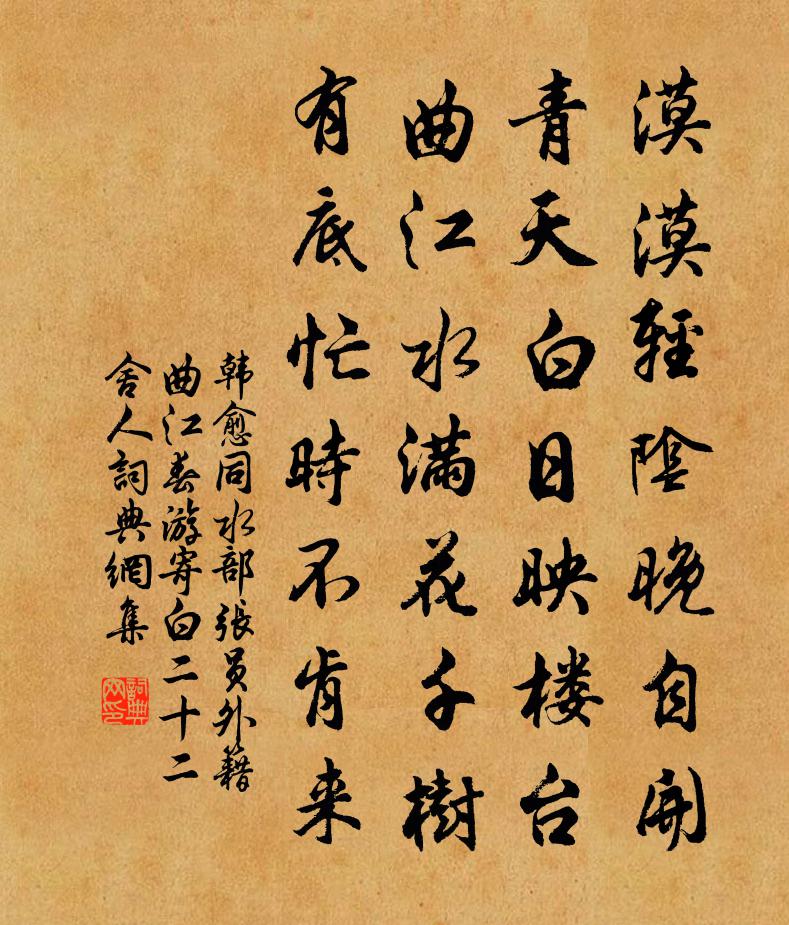 漠漠輕陰晚自開
青天白日映楼台
曲江水满花千樹
有底忙時不肯来
韩愈同水部張员外籍
曲江春游寄白二十二
舍人詞典網集
詞典网印